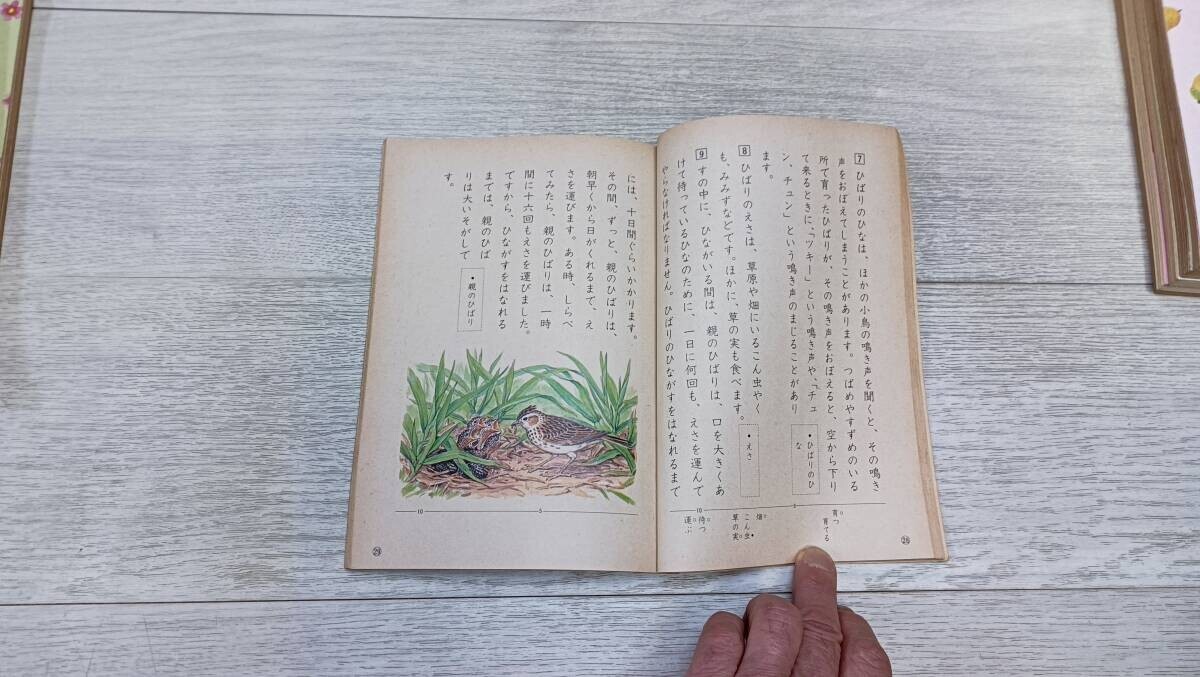 7 ひばりのひなは、ほかの小鳥の鳴き声を聞くと、その鳴き
声をおぼえてしまうことがあります。つばめやすずめのいる
所で育ったひばりが、その鳴き声をおぼえると、空から下り
て来るときに、「ツキー」という鳴き声や、「チュ
ン、チュン」という鳴き声のまじることがあり
ます。
・ひばりのひ
な
8 ひばりのえさは、草原や畑にいるこん虫やく
も、みみずなどです。ほかに、草の実も食べます。
・えさ
9 すの中に、ひながいる間は、親のひばりは、口を大きくあ
けて待っているひなのために、一日に何回も、えさを運んで
やらなければなりません。ひばりのひながすをはなれるまで
育つ
育てる
畑
こん虫
草の実
待つ
運ぶ
5
10
28
には、十日間ぐらいかかります。
その間、ずっと、親のひばりは、
朝早くから日がくれるまで、え
さを運びます。ある時、しらべ
てみたら、親のひばりは、一時
間に十六回もえさを運びました。
ですから、ひながすをはなれる
までは、親のひば
りは大いそがしで
す。
・親のひばり
5
10
29